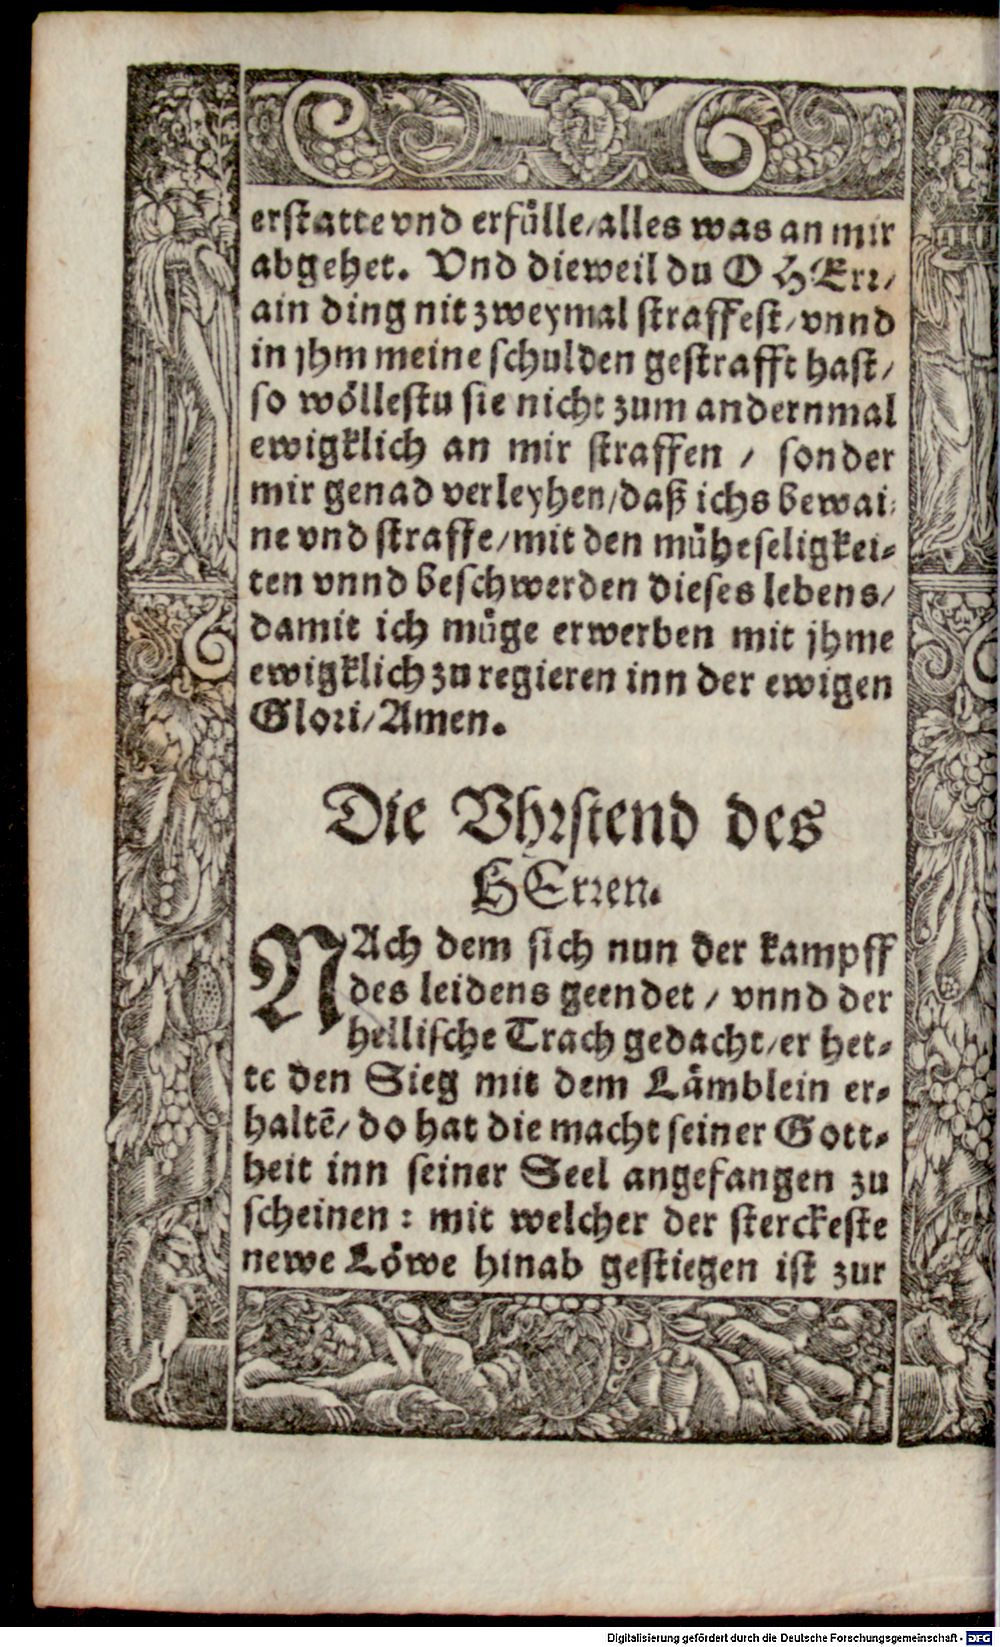 erstatte vnd erfülle/alles was an mir
abgehet. Vnd dieweil du O HErr/
ain ding nit zweymal straffest/vnnd
in jhm meine schulden gestrafft hast/
so wöllestu sie nicht zum andernmal
ewigklich an mir straffen / sonder
mir genad verleyhen/daß ichs bewai-
ne vnd straffe/mit den müheseligkei-
ten vnnd beschwerden dieses lebens/
damit ich müge erwerben mit jhme
ewigklich zu regieren inn der ewigen
Glori/Amen.
Die Vhrstend des
HErren.
NAch dem sich nun der kampff
des leidens geendet / vnnd der
hellische Trach gedacht/er het-
te den Sieg mit dem Lämblein er-
haltē/do hat die macht seiner Gott-
heit inn seiner Seel angefangen zu
scheinen : mit welcher der sterckeste
newe Löwe hinab gestiegen ist zur
Digitalisierung gefördert durch die Deutsche Forschungsgemeinschaft - DFG